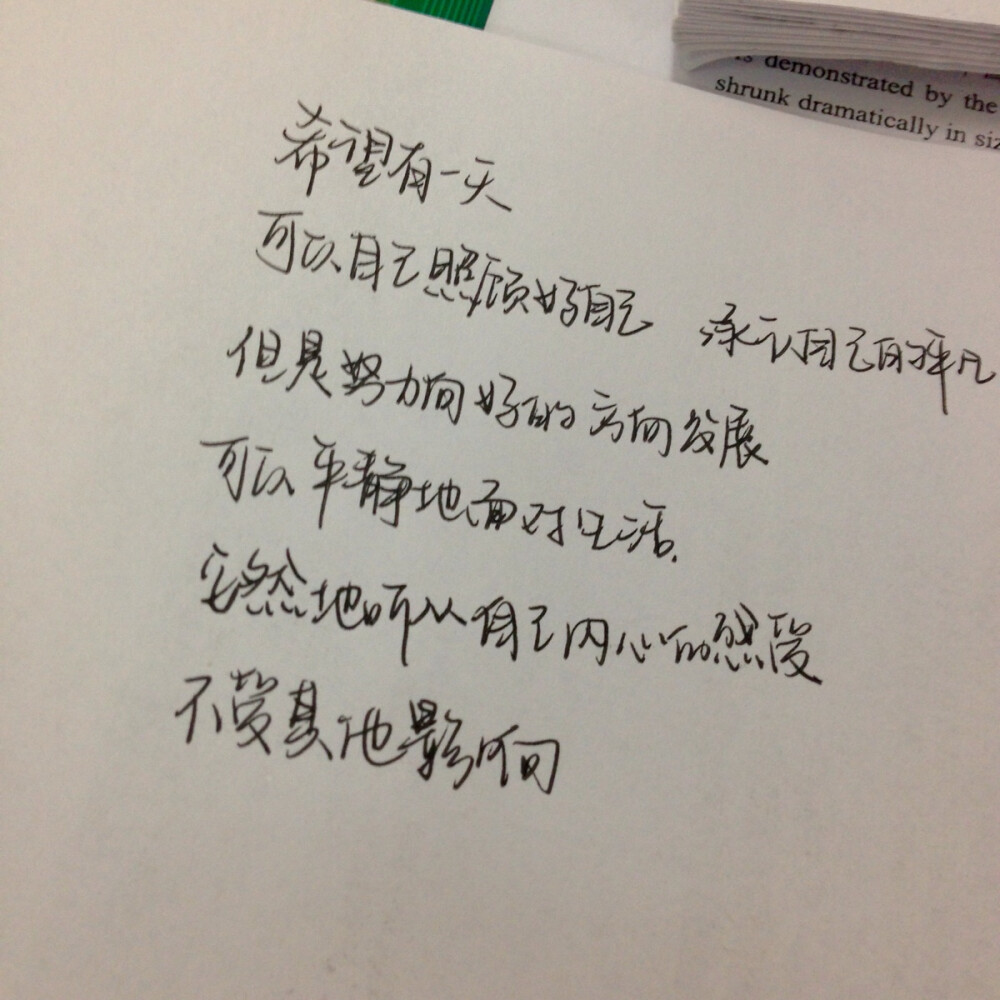 is demonstrated by the
shrunk dramatically in
希望有一天
可以自己照顾好自己 承认自己的平凡
但是努力向好的方向发展
可以平静地面对生活.
安然地听从自己内心的感受
不受其他影响